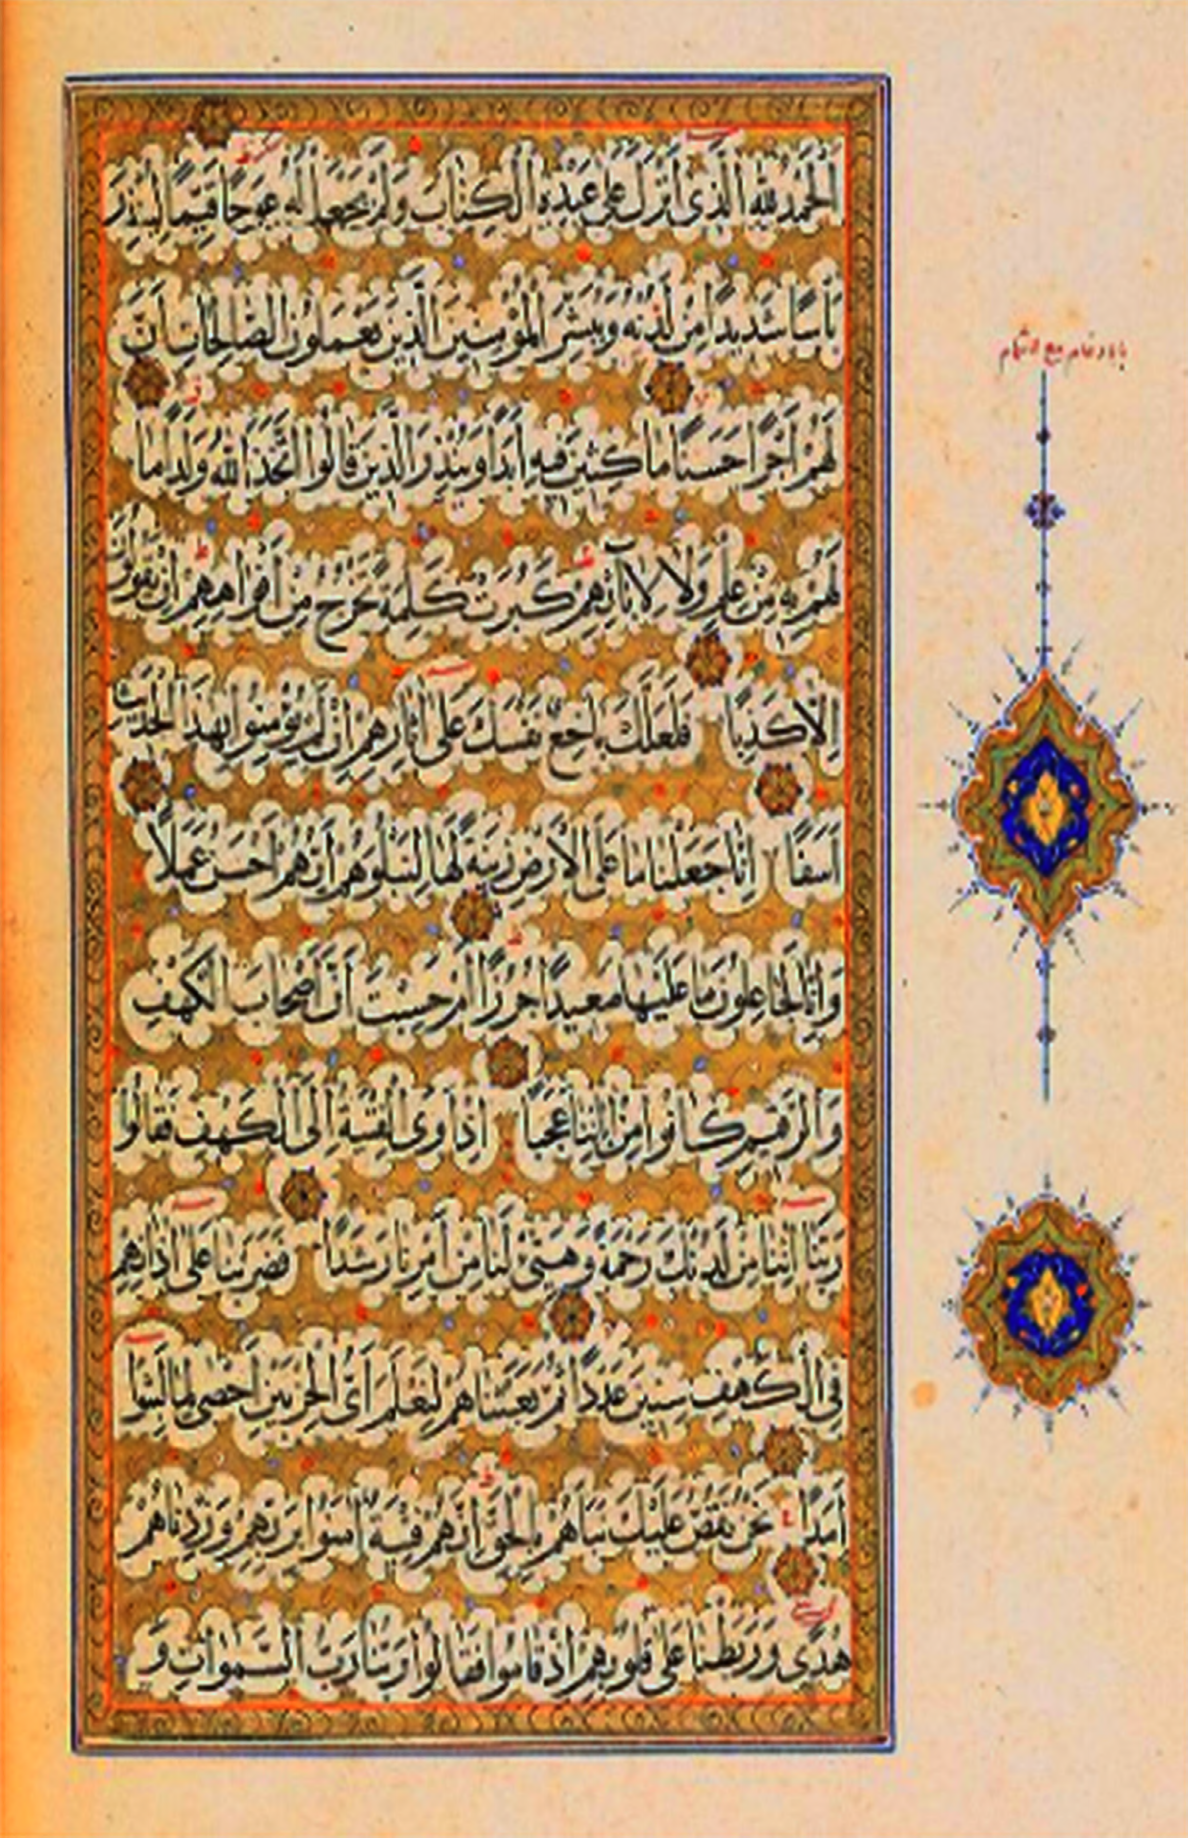 اَلْحَمْدُ لِلّٰهِ الَّذِى اَنْزَلَ عَلٰى عَبْدِهِ الْكِتَابَ وَلَمْ يَجْعَلْ لَهُ عِوَجًا قَيِّمًا لِيُنْذِرَ
بَأْسًا شَدِيدًا مِنْ لَدُنْهُ وَيُبَشِّرَ الْمُؤْمِنِينَ الَّذِينَ يَعْمَلُونَ الصَّالِحَاتِ اَنَّ
لَهُمْ اَجْرًا حَسَنًا مَاكِثِينَ فِيهِ اَبَدًا وَيُنْذِرَ الَّذِينَ قَالُوا اتَّخَذَ اللّٰهُ وَلَدًا مَا
لَهُمْ بِهِ مِنْ عِلْمٍ وَلَا لِاٰبَائِهِمْ كَبُرَتْ كَلِمَةً تَخْرُجُ مِنْ اَفْوَاهِهِمْ اِنْ يَقُولُونَ
اِلَّا كَذِبًا فَلَعَلَّكَ بَاخِعٌ نَفْسَكَ عَلٰى اٰثَارِهِمْ اِنْ لَمْ يُؤْمِنُوا بِهٰذَا الْحَدِيثِ
اَسَفًا اِنَّا جَعَلْنَا مَا عَلَى الْاَرْضِ زِينَةً لَهَا لِنَبْلُوَهُمْ اَيُّهُمْ اَحْسَنُ عَمَلًا
وَاِنَّا لَجَاعِلُونَ مَا عَلَيْهَا صَعِيدًا جُرُزًا اَمْ حَسِبْتَ اَنَّ اَصْحَابَ الْكَهْفِ
وَالرَّقِيمِ كَانُوا مِنْ اٰيَاتِنَا عَجَبًا اِذْ اَوَى الْفِتْيَةُ اِلَى الْكَهْفِ فَقَالُوا
رَبَّنَا اٰتِنَا مِنْ لَدُنْكَ رَحْمَةً وَهَيِّئْ لَنَا مِنْ اَمْرِنَا رَشَدًا فَضَرَبْنَا عَلٰى اٰذَانِهِمْ
فِى الْكَهْفِ سِنِينَ عَدَدًا ثُمَّ بَعَثْنَاهُمْ لِنَعْلَمَ اَىُّ الْحِزْبَيْنِ اَحْصٰى لِمَا لَبِثُوا
اَمَدًا نَحْنُ نَقُصُّ عَلَيْكَ نَبَأَهُمْ بِالْحَقِّ اِنَّهُمْ فِتْيَةٌ اٰمَنُوا بِرَبِّهِمْ وَزِدْنَاهُمْ
هُدًى وَرَبَطْنَا عَلٰى قُلُوبِهِمْ اِذْ قَامُوا فَقَالُوا رَبُّنَا رَبُّ السَّمٰوَاتِ وَ